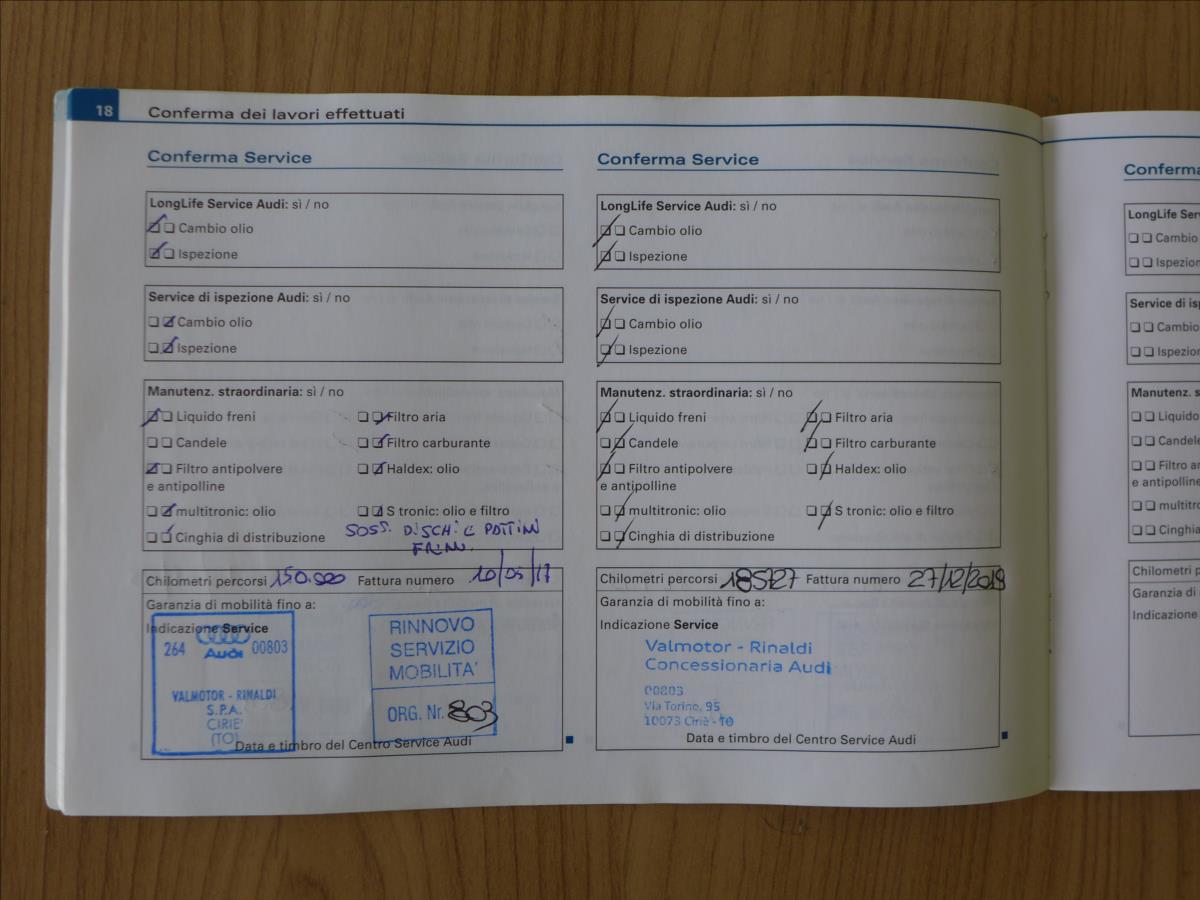 18 Conferma dei lavori effettuati
Conferma Service
LongLife Service Audi: sì / no
Cambio olio
Ispezione
Service di ispezione Audi: sì / no
Cambio olio
Ispezione
Manutenz. straordinaria: sì / no
Liquido freni Filtro aria
Candele Filtro carburante
Filtro antipolvere Haldex: olio
e antipolline
multitronic: olio S tronic: olio e filtro
Cinghia di distribuzione SOSS. DISCHI E PATTINI
FRENI.
Chilometri percorsi 150.000 Fattura numero 10/05/17
Garanzia di mobilità fino a:
Indicazione Service
264 Audi 00803
VALMOTOR - RINALDI
S.P.A.
CIRIE'
(TO)
RINNOVO
SERVIZIO
MOBILITA'
ORG. Nr. 803
Data e timbro del Centro Service Audi
Conferma Service
LongLife Service Audi: sì / no
Cambio olio
Ispezione
Service di ispezione Audi: sì / no
Cambio olio
Ispezione
Manutenz. straordinaria: sì / no
Liquido freni Filtro aria
Candele Filtro carburante
Filtro antipolvere Haldex: olio
e antipolline
multitronic: olio S tronic: olio e filtro
Cinghia di distribuzione
Chilometri percorsi 185727 Fattura numero 27/12/2019
Garanzia di mobilità fino a:
Indicazione Service
Valmotor - Rinaldi
Concessionaria Audi
00803
Via Torino, 95
10073 Ciriè - TO
Data e timbro del Centro Service Audi
Conferma
LongLife Service
Cambio
Ispezion
Service di is
Cambio
Ispezion
Manutenz. s
Liquido
Candele
Filtro an
e antipolline
multitro
Cinghia
Chilometri p
Garanzia di
Indicazione